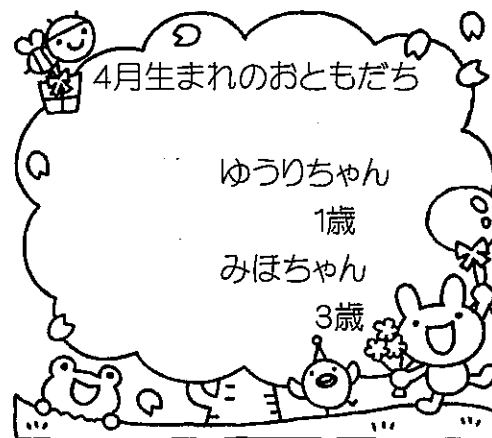 4月生まれのおともだち
ゆうりちゃん
1歳
みほちゃん
3歳